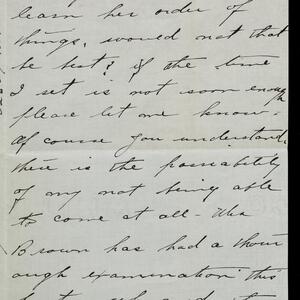 learn her order of
things, would not that
be best? if the time
I set is not soon enough
please let me know -
Of course you understand,
there is the possibility
of my not being able
to come at all -
Brown has had a thor
ough examination this